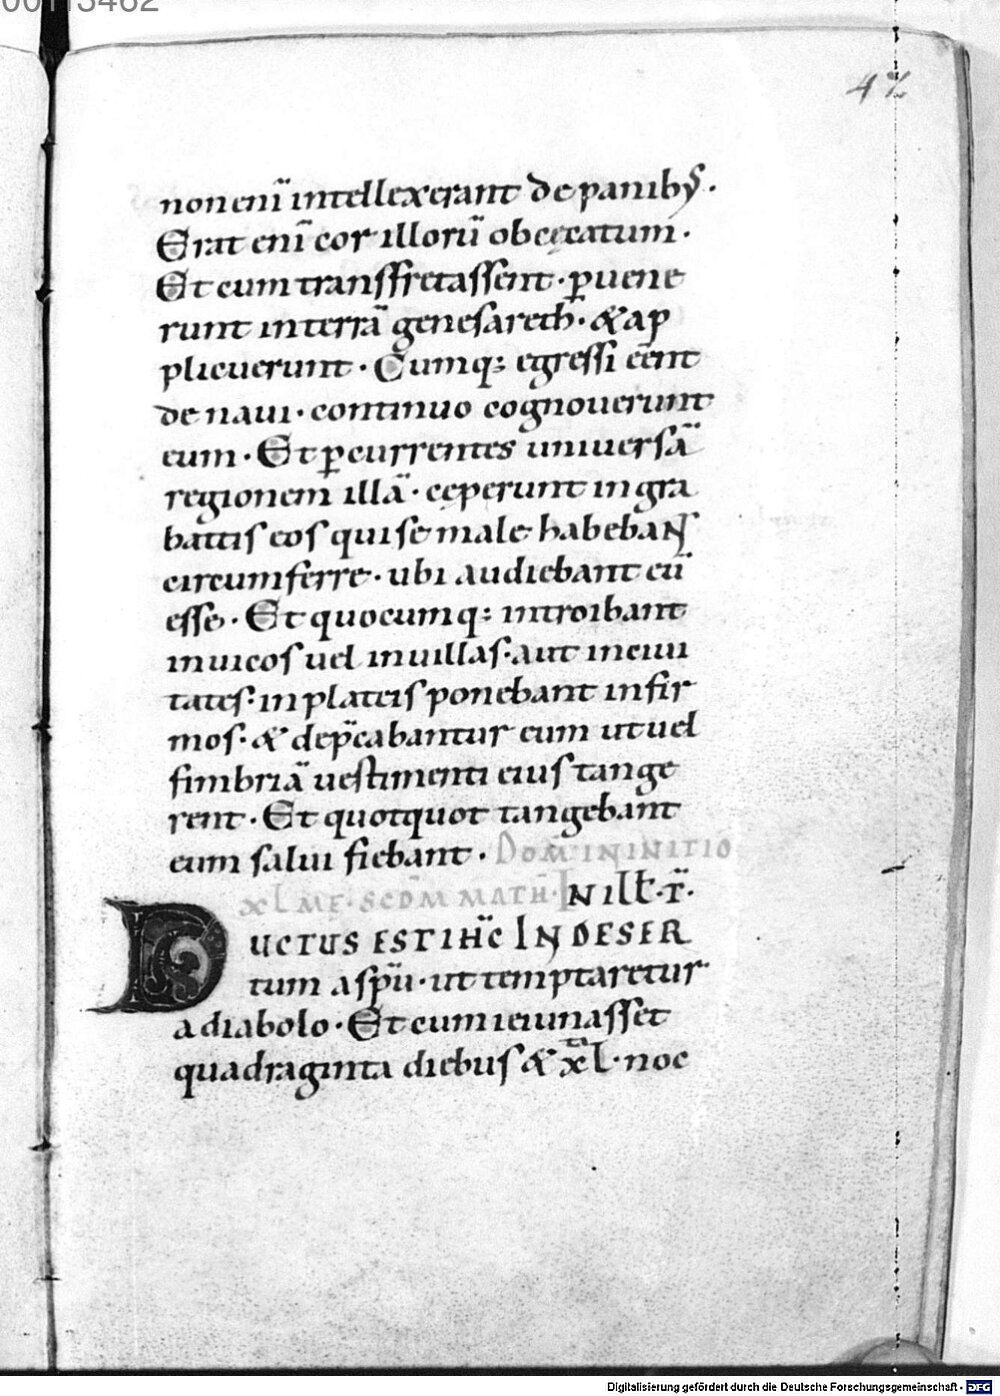 00113462
42
non enī intellexerant de panibꝰ.
Erat enī cor illorū obcęcatum.
Et cum transfretassent. ꝑuene
runt in terrā genesareth. & ap
plicuerunt. Cumq: egressi eēnt
de naui. continuo cognouerunt
eum. Et ꝑcurrentes uniuersā
regionem illā. cęperunt in gra
battis eos qui se male habebant
circumferre. ubi audiebant eū
esse. Et quocumq: introibant
in uicos uel in uillas. aut in ciui
tates. in plateis ponebant infir
mos. & dep̄cabantur eum ut uel
fimbriā uestimenti eius tange
rent. Et quotquot tangebant
eum salui fiebant. DOM̄ IN INITIO
XL ME. SCDM MATH. IN ILŁ. T̄.
DUCTUS EST IHC̄ IN DESER
tum a sp̄u. ut temptaretur
a diabolo. Et cum ieiunasset
quadraginta diebus & xl^ta. noc
Digitalisierung gefördert durch die Deutsche Forschungsgemeinschaft - DFG